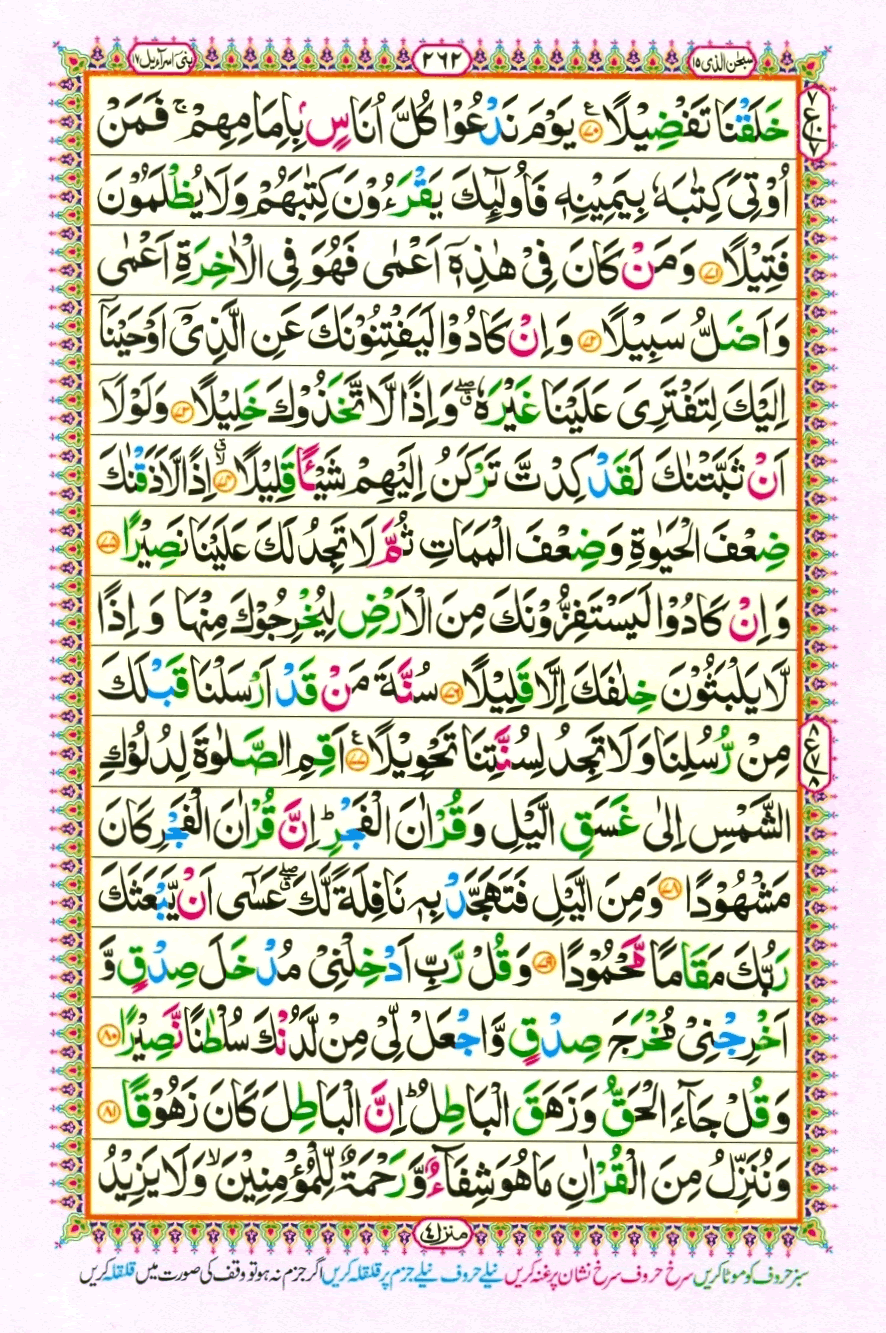 سبحٰن الذی ۱۵ ۲۶۲ بنیٓ اسرآءیل ۱۷
خَلَقْنَا تَفْضِيْلًا ۧ۝۷۰ يَوْمَ نَدْعُوْا كُلَّ اُنَاسٍۭ بِاِمَامِهِمْ ۚ فَمَنْ
اُوْتِيَ كِتٰبَهٗ بِيَمِيْنِهٖ فَاُولٰٓئِكَ يَقْرَءُوْنَ كِتٰبَهُمْ وَلَا يُظْلَمُوْنَ
فَتِيْلًا ۝۷۱ وَمَنْ كَانَ فِيْ هٰذِهٖٓ اَعْمٰى فَهُوَ فِي الْاٰخِرَةِ اَعْمٰى
وَاَضَلُّ سَبِيْلًا ۝۷۲ وَاِنْ كَادُوْا لَيَفْتِنُوْنَكَ عَنِ الَّذِيْٓ اَوْحَيْنَآ
اِلَيْكَ لِتَفْتَرِيَ عَلَيْنَا غَيْرَهٗ ۖۗ وَاِذًا لَّاتَّخَذُوْكَ خَلِيْلًا ۝۷۳ وَلَوْلَآ
اَنْ ثَبَّتْنٰكَ لَقَدْ كِدْتَّ تَرْكَنُ اِلَيْهِمْ شَيْـًٔا قَلِيْلًا ۝۷۴ۙۗ اِذًا لَّاَذَقْنٰكَ
ضِعْفَ الْحَيٰوةِ وَضِعْفَ الْمَمَاتِ ثُمَّ لَا تَجِدُ لَكَ عَلَيْنَا نَصِيْرًا ۝۷۵
وَاِنْ كَادُوْا لَيَسْتَفِزُّوْنَكَ مِنَ الْاَرْضِ لِيُخْرِجُوْكَ مِنْهَا وَاِذًا
لَّا يَلْبَثُوْنَ خِلٰفَكَ اِلَّا قَلِيْلًا ۝۷۶ سُنَّةَ مَنْ قَدْ اَرْسَلْنَا قَبْلَكَ
مِنْ رُّسُلِنَا وَلَا تَجِدُ لِسُنَّتِنَا تَحْوِيْلًا ۧ۝۷۷ اَقِمِ الصَّلٰوةَ لِدُلُوْكِ
الشَّمْسِ اِلٰى غَسَقِ الَّيْلِ وَقُرْاٰنَ الْفَجْرِ ؕ اِنَّ قُرْاٰنَ الْفَجْرِ كَانَ
مَشْهُوْدًا ۝۷۸ وَمِنَ الَّيْلِ فَتَهَجَّدْ بِهٖ نَافِلَةً لَّكَ ۖۗ عَسٰٓى اَنْ يَّبْعَثَكَ
رَبُّكَ مَقَامًا مَّحْمُوْدًا ۝۷۹ وَقُلْ رَّبِّ اَدْخِلْنِيْ مُدْخَلَ صِدْقٍ وَّ
اَخْرِجْنِيْ مُخْرَجَ صِدْقٍ وَّاجْعَلْ لِّيْ مِنْ لَّدُنْكَ سُلْطٰنًا نَّصِيْرًا ۝۸۰
وَقُلْ جَآءَ الْحَقُّ وَزَهَقَ الْبَاطِلُ ؕ اِنَّ الْبَاطِلَ كَانَ زَهُوْقًا ۝۸۱
وَنُنَزِّلُ مِنَ الْقُرْاٰنِ مَا هُوَ شِفَآءٌ وَّرَحْمَةٌ لِّلْمُؤْمِنِيْنَ ۙ وَلَا يَزِيْدُ
۷ ع ۷
۸ ع ۷ ۸
منزل ۴
سبز حروف کو موٹا کریں سرخ حروف سرخ نشان پر غنہ کریں نیلے حروف نیلے جزم پر قلقلہ کریں اگر جزم نہ ہو تو وقف کی صورت میں قلقلہ کریں